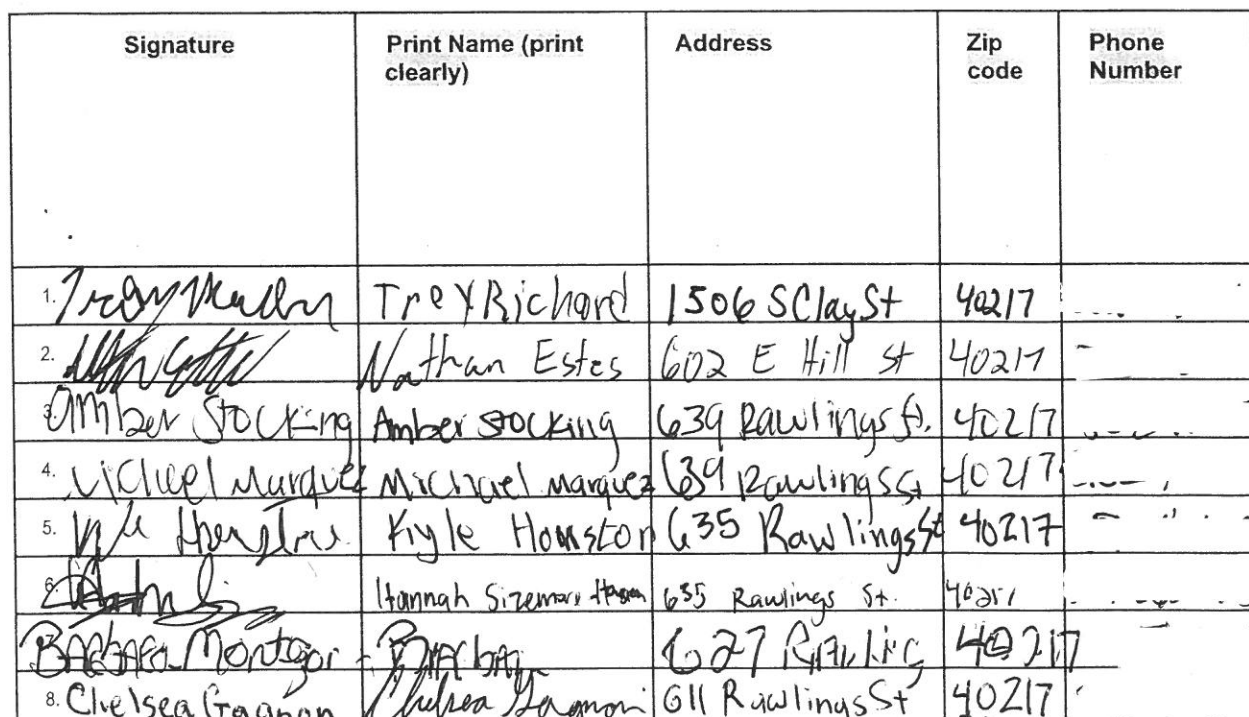 Signature Print Name (print clearly) Address Zip code Phone Number
1. Trey Richard 1506 S Clay St 40217
2. Nathan Estes 602 E Hill St 40217
3. Amber Stocking Amber Stocking 639 Rawlings St. 40217
4. Michael Marquez Michael Marquez 639 Rawlings St 40217
5. Kyle Houston 635 Rawlings St 40217
6. Hannah Sizemore 635 Rawlings St. 40217
Barbara Montgor Barbar 627 Rawling 40217
8. Chelsea Gagnon Chelsea Gagnon 611 Rawlings St 40217